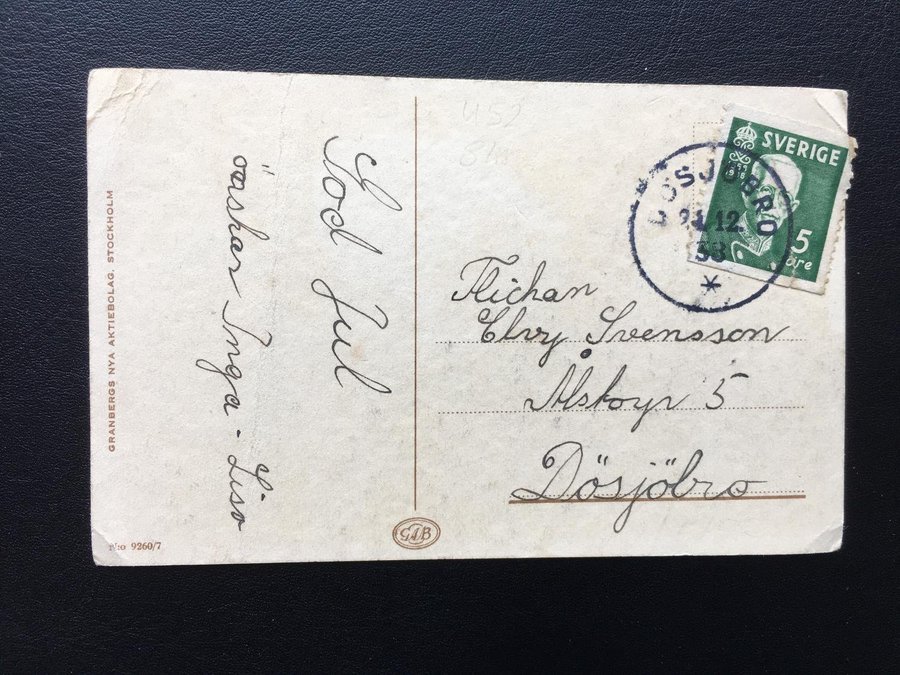 God Jul
önskar Inga-Lisa
GRANBERGS NYA AKTIEBOLAG, STOCKHOLM
No 9260/7
GAB
SVERIGE
5
öre
DÖSJÖBRO
21.12.
38
Flickan
Elvy Svensson
Ålstorp 5
Dösjöbro